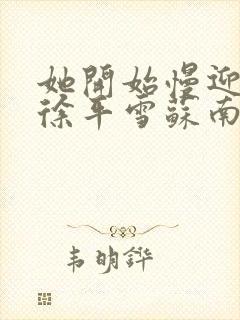 她開始慢迎
徐平雪蘇南
韦明鏵